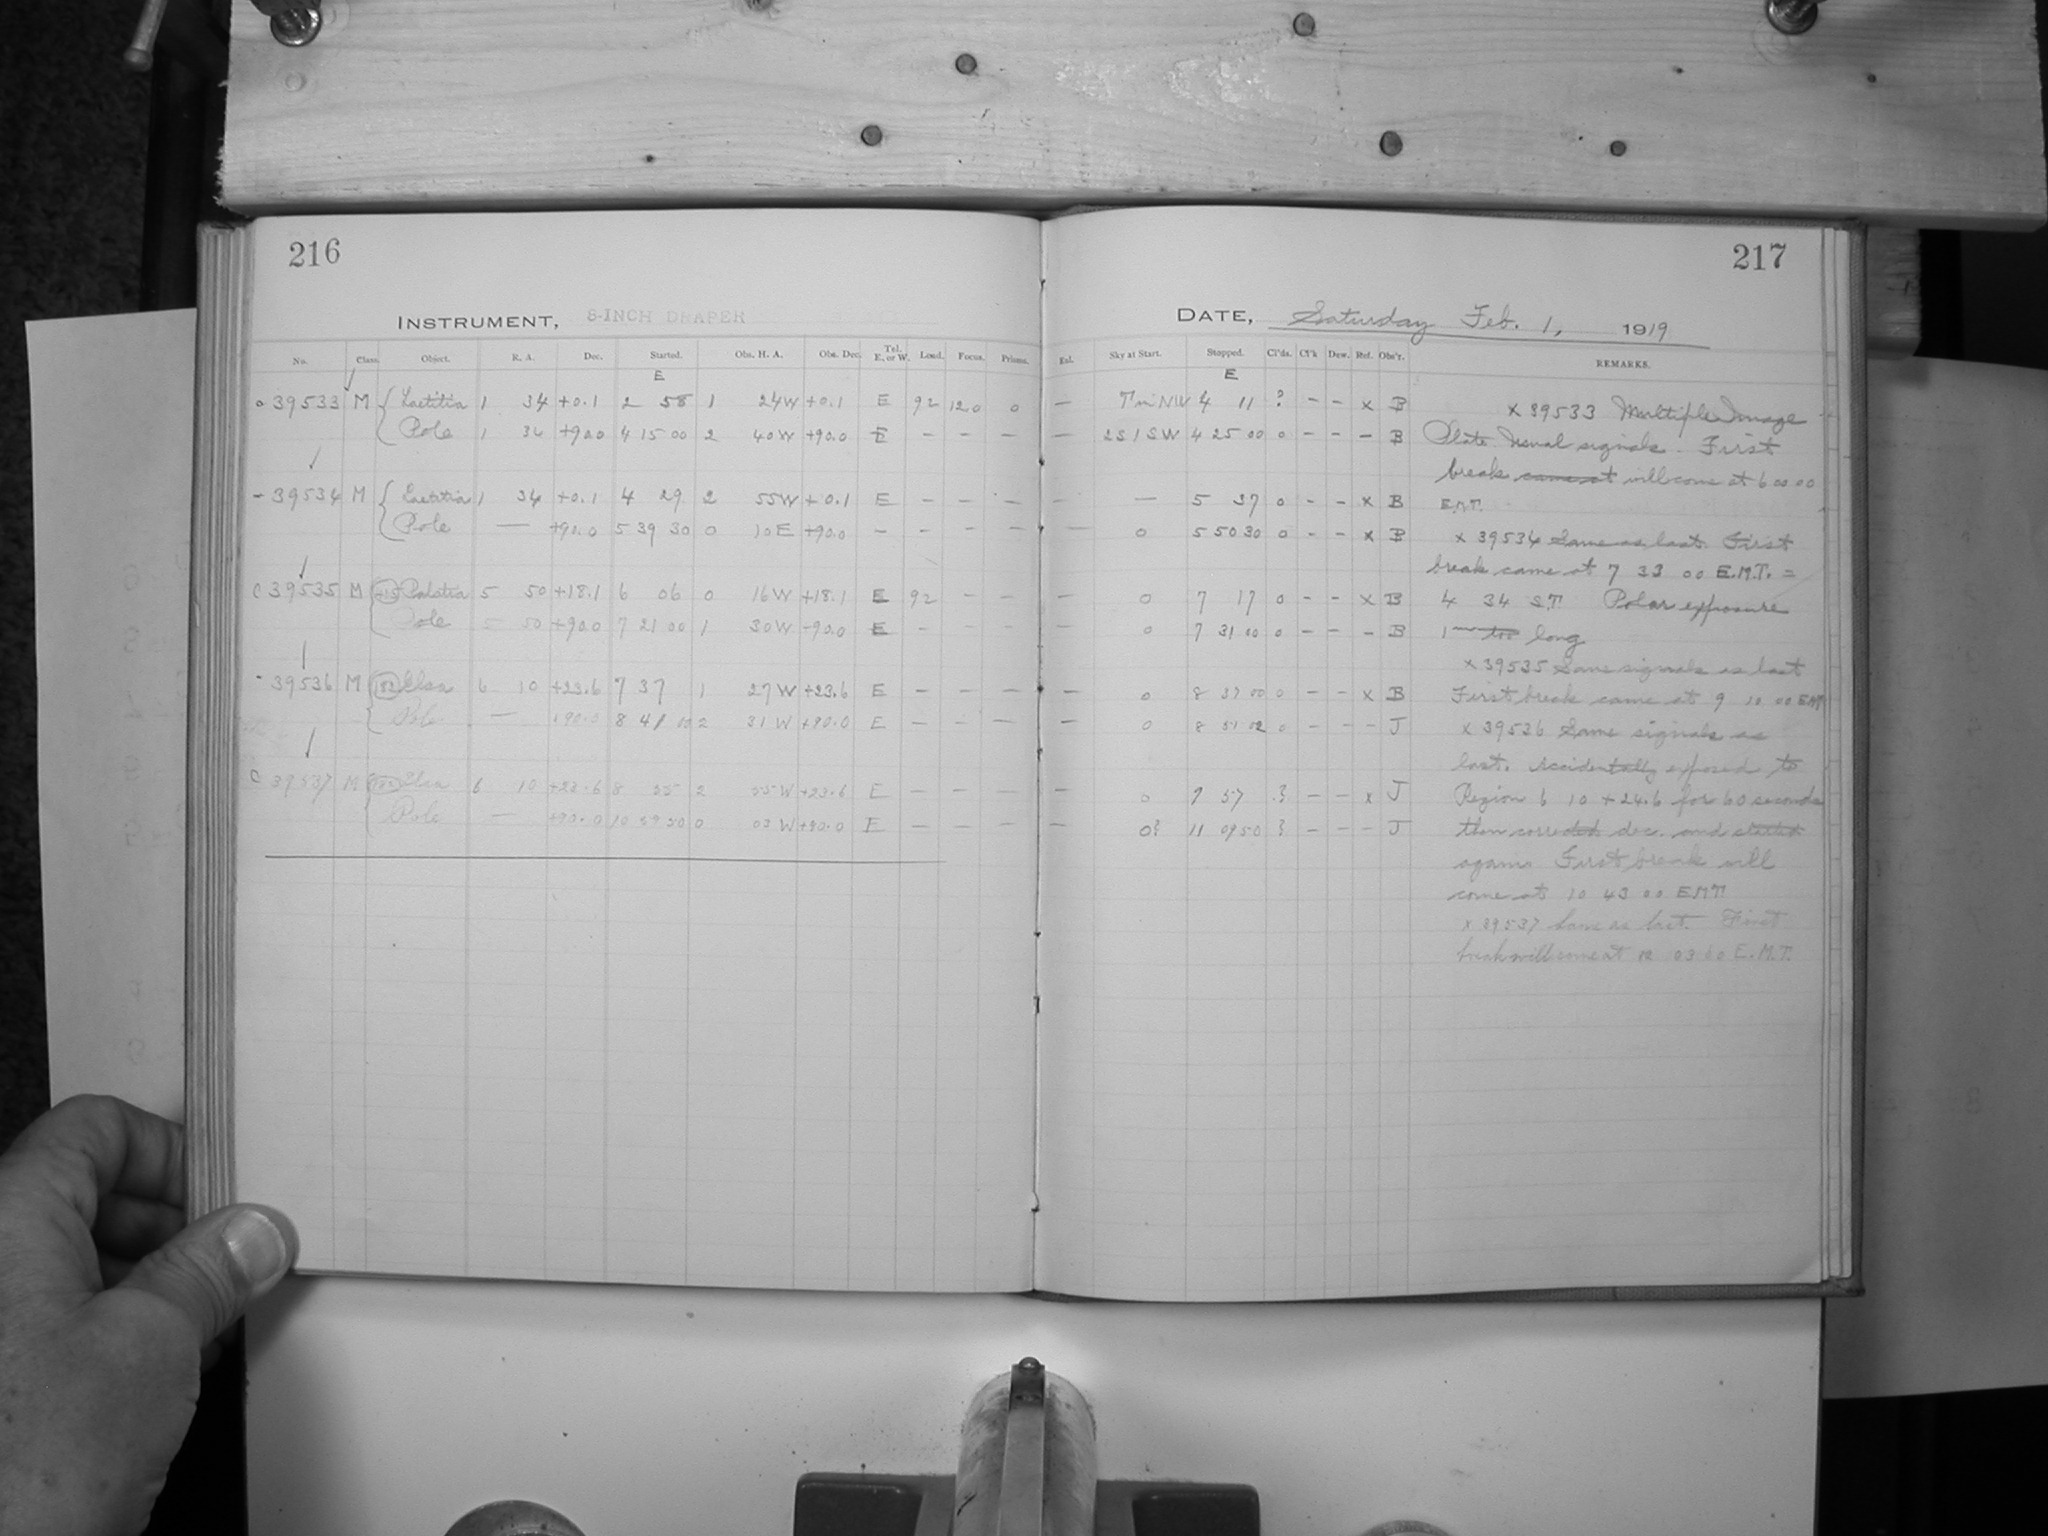 216
INSTRUMENT, 8-INCH DRAPER
No. Class. Object. R. A. Dec. Started. Obs. H. A. Obs. Dec. Tel. E. or W. Load. Focus. Prisms.
E
39533 M Laetitia 1 34 +0.1 2 58 1 24 W +0.1 E 92 12.0 0
Pole 1 34 +90.0 4 15 00 2 40 W +90.0 E - - -
39534 M Laetitia 1 34 +0.1 4 29 2 55 W +0.1 E - - -
Pole — +90.0 5 39 30 0 10 E +90.0 - - - -
39535 M 5 50 +18.1 6 06 0 16 W +18.1 E 92 - -
Pole 5 50 +90.0 7 21 00 1 30 W +90.0 E - - -
39536 M (182) Elsa 6 10 +23.6 7 37 1 27 W +23.6 E - - -
Pole — +90.0 8 41 00 2 31 W +90.0 E - - -
39537 M (182) Elsa 6 10 +23.6 8 55 2 55 W +23.6 E - - -
Pole — +90.0 10 59 50 0 03 W +90.0 E - - -
217
DATE, Saturday Feb. 1, 1919
Exl. Sky at Start. Stopped. Cl'ds. Cl'k Dew. Ref. Obs'r. REMARKS.
E
— NW 4 11 ? - - x B x 39533 Multiple Image
— 2S1SW 4 25 00 0 - - - B Plate. Usual signals. First
break came at will come at 6 00 00
— — 5 37 0 - - x B E.M.T.
— 0 5 50 30 0 - - x B x 39534 Same as last. First
break came at 7 33 00 E.M.T. =
0 7 17 0 - - x B 4 34 S.T. Polar exposure
0 7 31 00 0 - - - B 1m too long
x 39535 Same signals as last
— 0 8 37 00 0 - - x B First break came at 9 10 00 EMT
— 0 8 51 02 0 - - - J x 39536 Same signals as
last. Accidentally exposed to
— 0 9 57 ? - - x J Region 6 10 +24.6 for 60 seconds
— 0? 11 09 50 ? - - - J then corrected dec. and started
again. First break will
come at 10 43 00 EMT
x 39537 Same as last. First
break will come at 12 03 00 E.M.T.